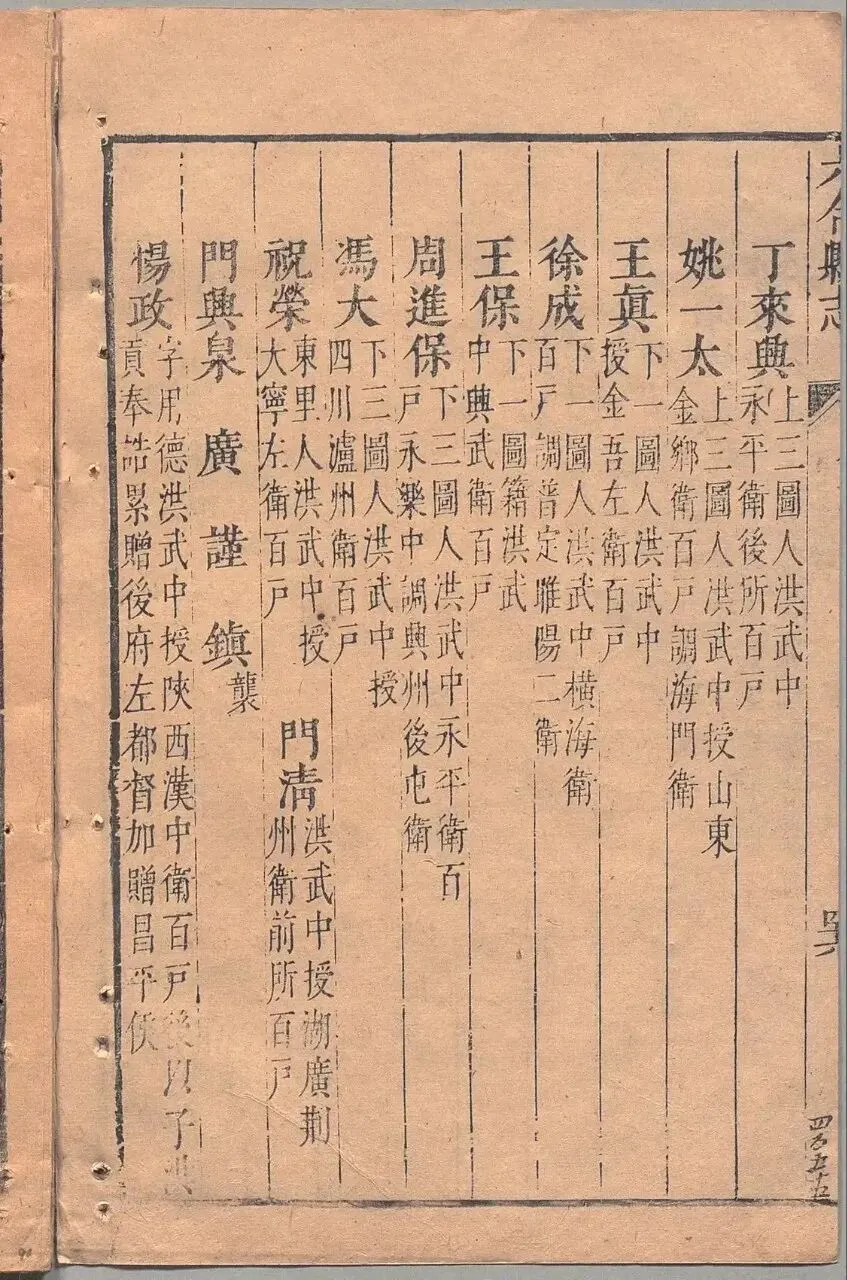 六合縣志
丁來興 上三圖人洪武中
永平衛後所百戶
姚一太 上三圖人洪武中授山東
金鄉衛百戶調海門衛
王眞 下一圖人洪武中
授金吾左衛百戶
徐成 下一圖人洪武中橫海衛
百戶調普定睢陽二衛
王保 下一圖籍洪武
中興武衛百戶
周進保 下三圖人洪武中永平衛百
戶永樂中調興州後屯衛
馮大 下三圖人洪武中授
四川瀘州衛百戶
祝榮 東里人洪武中授
大寧左衛百戶
門淸 洪武中授湖廣荆
州衛前所百戶
門興泉 廣 謹 鎮 襲
楊政 字用德洪武中授陝西漢中衛百戶後以子洪
貢奉誥累贈後府左都督加贈昌平侯